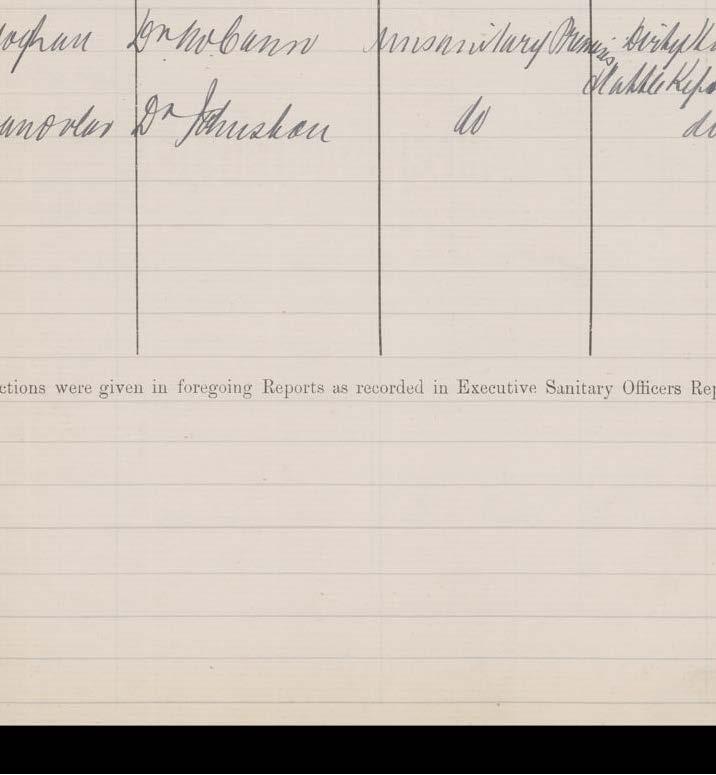 Dr McCann unsanitary Premis Dirty
Dr Johnston do
ctions were given in foregoing Reports as recorded in Executive Sanitary Officers Rep